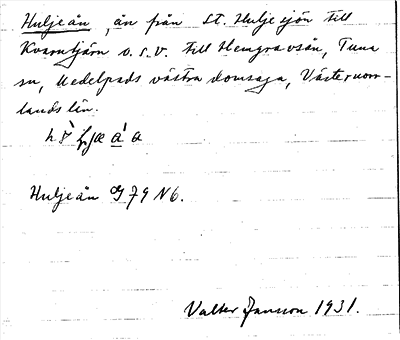 Huljeån, ån från St. Huljesjön till
Kvarntjärn o.s.v. till Hemgravsån, Tuna
sn, Medelpads västra domsaga, Västernorr-
lands län.
Huljeån G 79 N6.
Valter Jansson 1931.